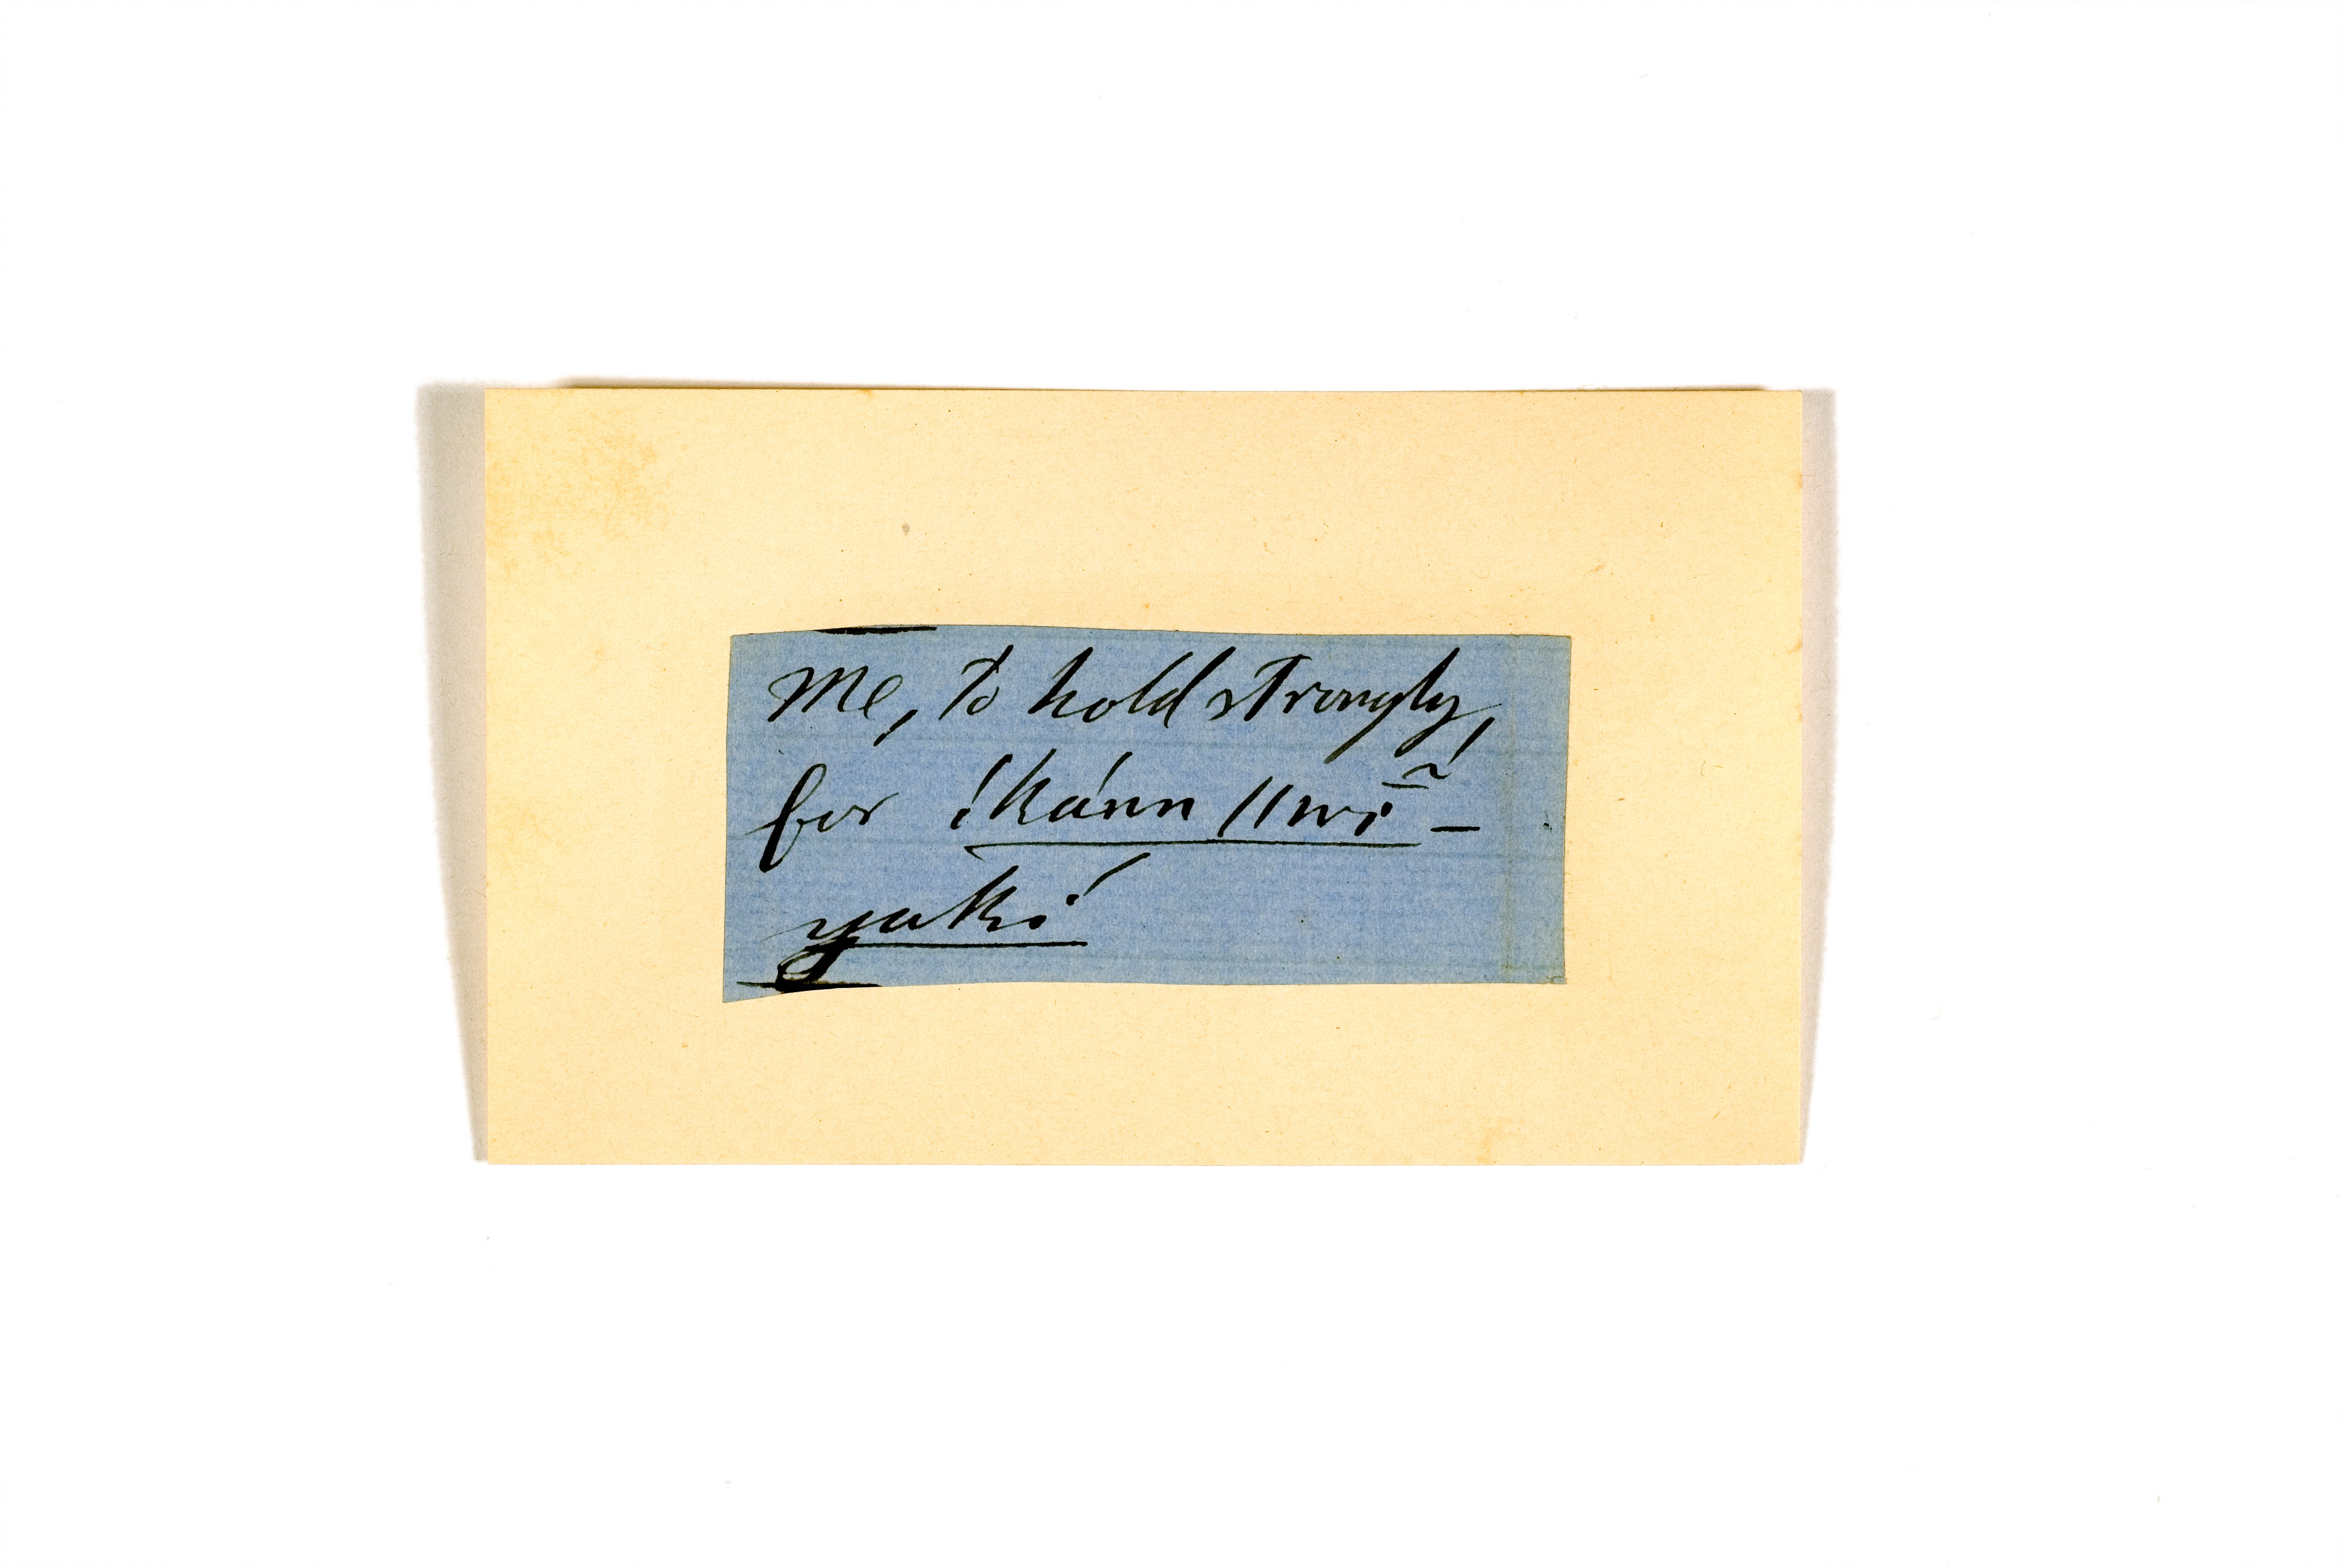 me, to hold strongly,
for !kánn ǁwī̃-
yakí